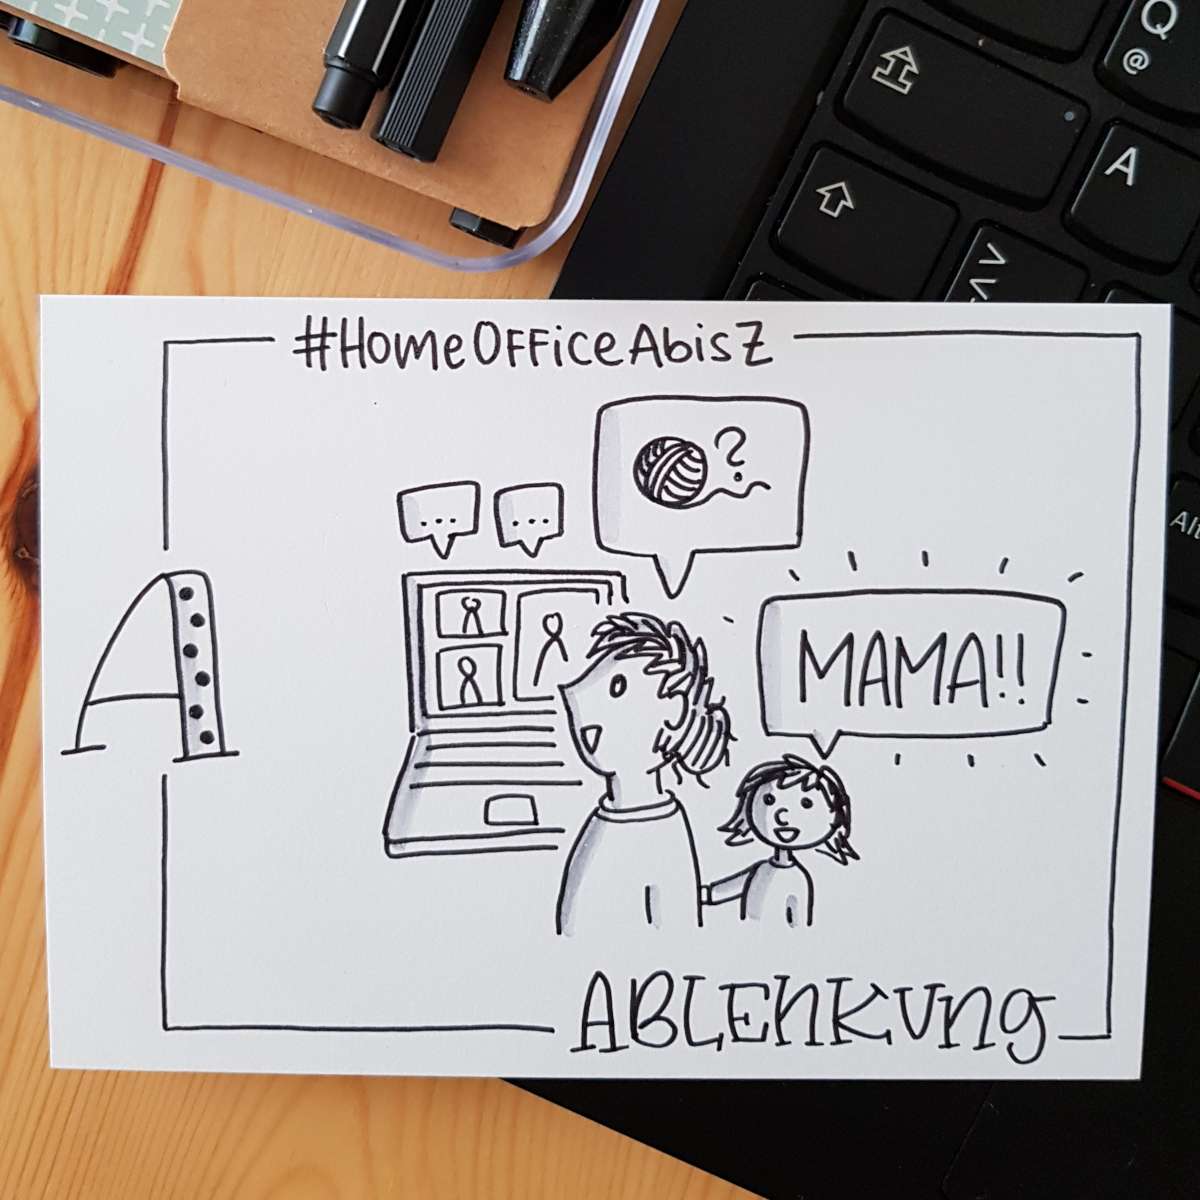 Q
@
A
<>
Alt
#HomeOfficeAbisZ
?
...
...
MAMA!!
A
ABLENKUNG